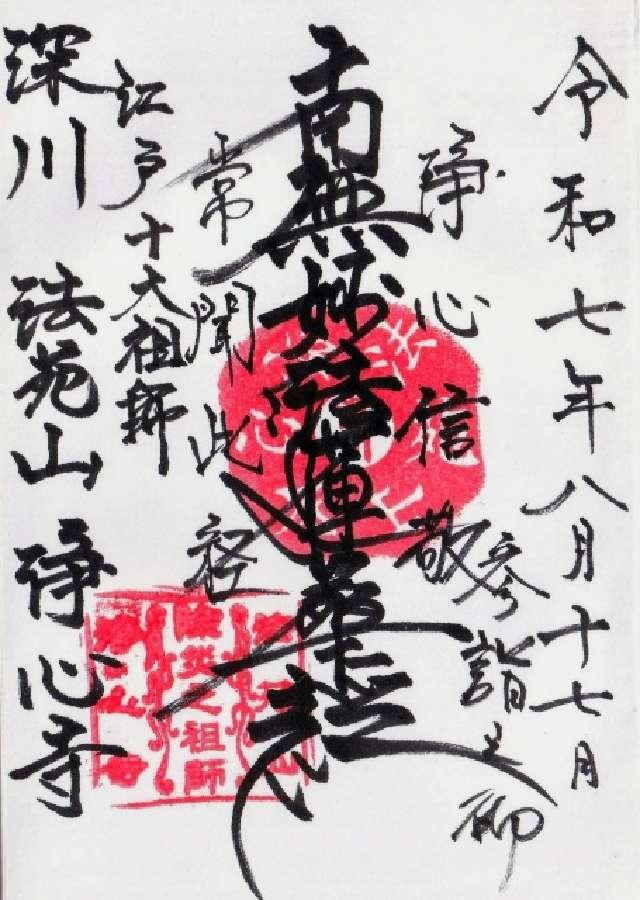 令和七年八月十七日
参詣之砌
浄心信敬
南無妙法蓮華経
常聞此経
江戸十大祖師
深川 法苑山 浄心寺
除災之祖師